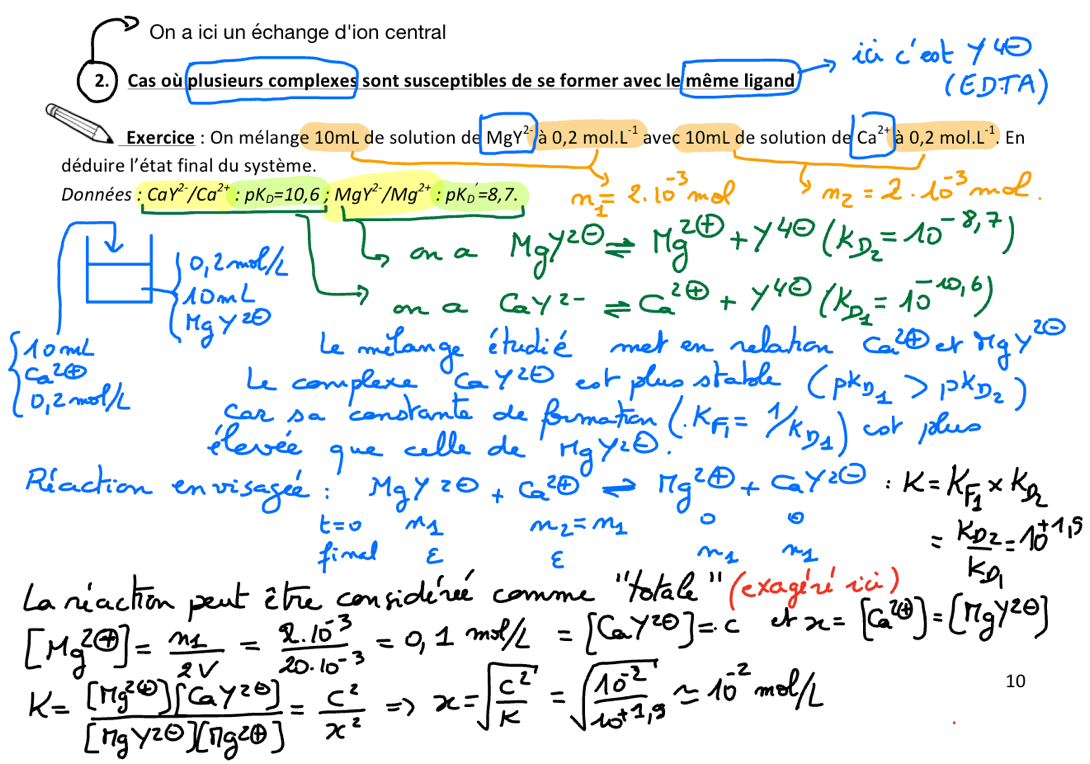 On a ici un échange d'ion central
2. Cas où plusieurs complexes sont susceptibles de se former avec le même ligand
ici c'est Y4⊖
(EDTA)
Exercice : On mélange 10mL de solution de MgY²⁻ à 0,2 mol.L⁻¹ avec 10mL de solution de Ca²⁺ à 0,2 mol.L⁻¹. En
déduire l'état final du système.
n₁ = 2.10⁻³ mol
n₂ = 2.10⁻³ mol.
Données : CaY²⁻/Ca²⁺ : pK_D=10,6 ; MgY²⁻/Mg²⁺ : pK_D'=8,7.
on a MgY2⊖ ⇌ Mg²⊕ + Y4⊖ (K_D₂ = 10⁻⁸,⁷)
on a CaY2- ⇌ Ca²⊕ + Y4⊖ (K_D₁ = 10⁻¹⁰,⁶)
0,2 mol/L
10mL
MgY2⊖
10mL
Ca²⊕
0,2 mol/L
Le mélange étudié met en relation Ca²⊕ et MgY²⊖
Le complexe CaY2⊖ est plus stable (pK_D₁ > pK_D₂)
car sa constante de formation (K_F₁ = 1/K_D₁) est plus
élevée que celle de MgY2⊖.
Réaction envisagée : MgY2⊖ + Ca²⊕ ⇌ Mg²⊕ + CaY2⊖ : K = K_F₁ × K_D₂
t=0 n₁ n₂=n₁ 0 0
= K_D₂/K_D₁ = 10⁺¹,⁹
final ε ε n₁ n₁
La réaction peut être considérée comme "totale" (exagéré ici)
[Mg²⊕] = n₁/2V = 2.10⁻³/20.10⁻³ = 0,1 mol/L = [CaY2⊖] = c et x = [Ca²⊕] = [MgY2⊖]
K = [Mg²⊕][CaY2⊖]/[MgY2⊖][Mg²⊕] = c²/x² => x = √(c²/K) = √(10⁻²/10⁺¹,⁹) ≃ 10⁻² mol/L
10